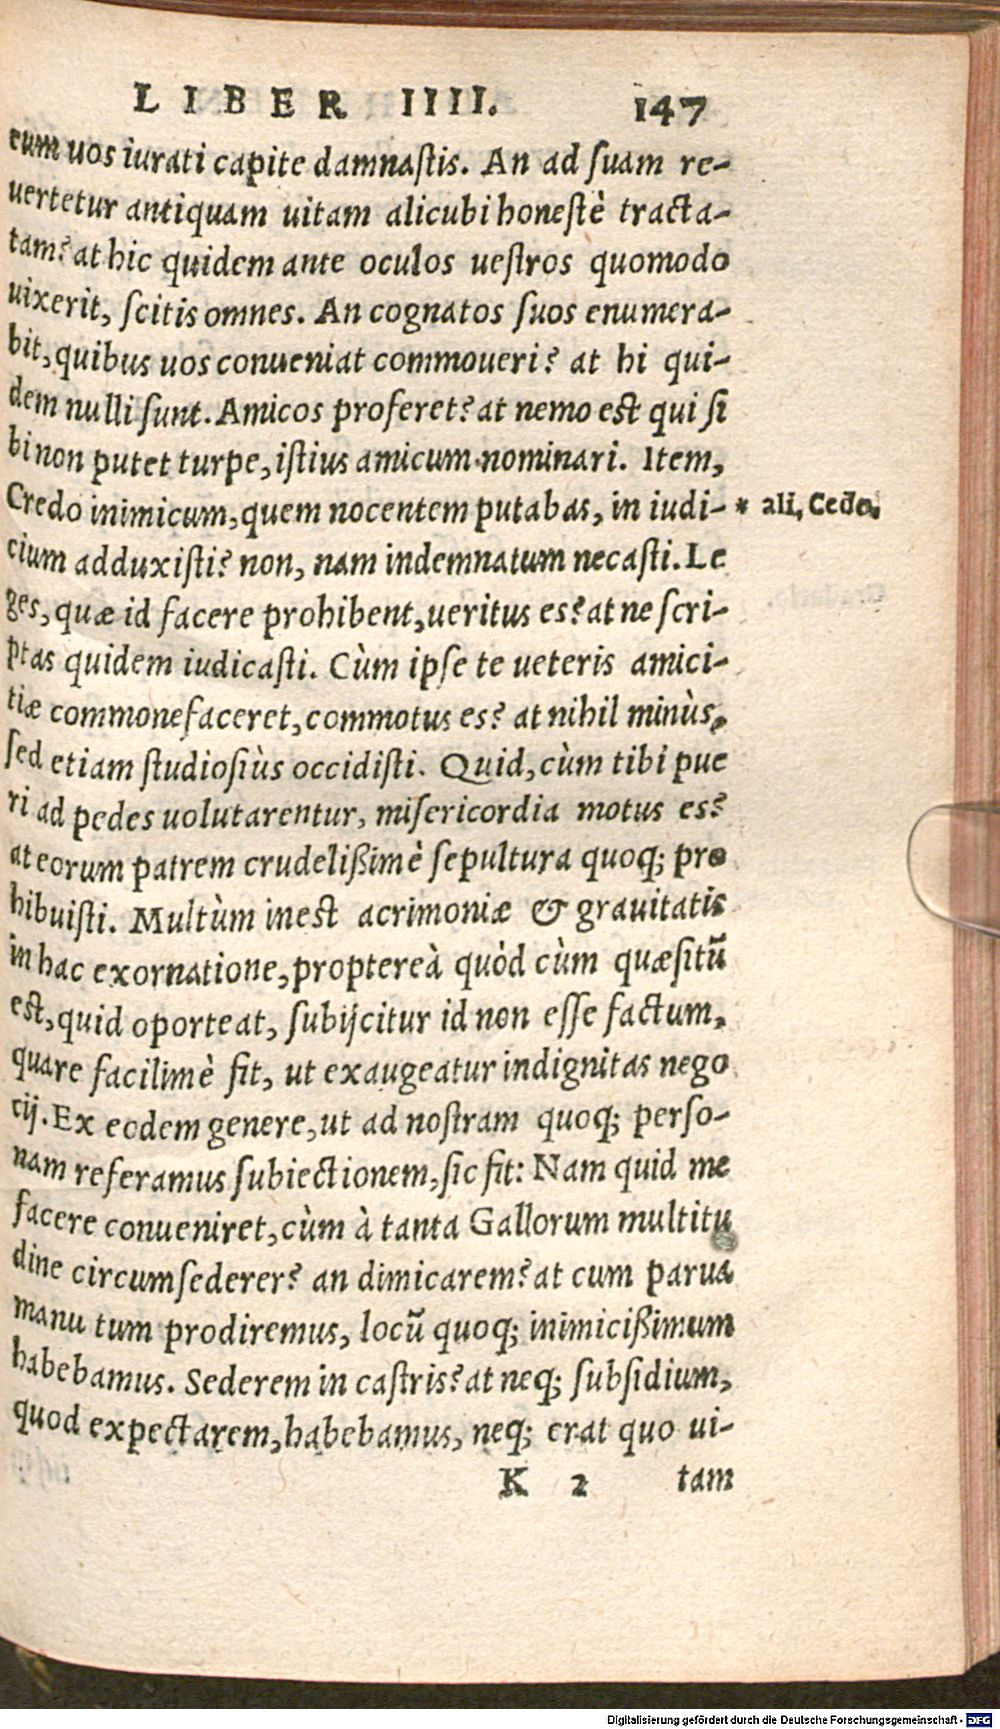 LIBER IIII. 147
eum uos iurati capite damnaſtis. An ad ſuam re-
uertetur antiquam uitam alicubi honeſtè tracta-
tam? at hic quidem ante oculos ueſtros quomodo
uixerit, ſcitis omnes. An cognatos ſuos enumera-
bit, quibus uos conueniat commoueri? at hi qui-
dem nulli ſunt. Amicos proferet? at nemo eſt qui ſi
bi non putet turpe, iſtius amicum nominari. Item,
Credo inimicum, quem nocentem putabas, in iudi- * ali, Cedo.
cium adduxiſti? non, nam indemnatum necaſti. Le
ges, quæ id facere prohibent, ueritus es? at ne ſcri-
ptas quidem iudicaſti. Cùm ipſe te ueteris amici-
tiæ commonefaceret, commotus es? at nihil minùs,
ſed etiam ſtudioſiùs occidiſti. Quid, cùm tibi pue
ri ad pedes uolutarentur, miſericordia motus es?
at eorum patrem crudelißimè ſepultura quoq; pro
hibuiſti. Multùm ineſt acrimoniæ & grauitatis
in hac exornatione, proptereà quòd cùm quæſitũ
eſt, quid oporteat, ſubijcitur id non eſſe factum,
quare facilimè fit, ut exaugeatur indignitas nego
cij. Ex eodem genere, ut ad noſtram quoq; perſo-
nam referamus ſubiectionem, ſic fit: Nam quid me
facere conueniret, cùm à tanta Gallorum multitu
dine circumſederer? an dimicarem? at cum parua
manu tum prodiremus, locũ quoq; inimicißimum
habebamus. Sederem in caſtris? at neq; ſubſidium,
quod expectarem, habebamus, neq; erat quo ui-
K 2 tam
Digitalisierung gefördert durch die Deutsche Forschungsgemeinschaft - DFG